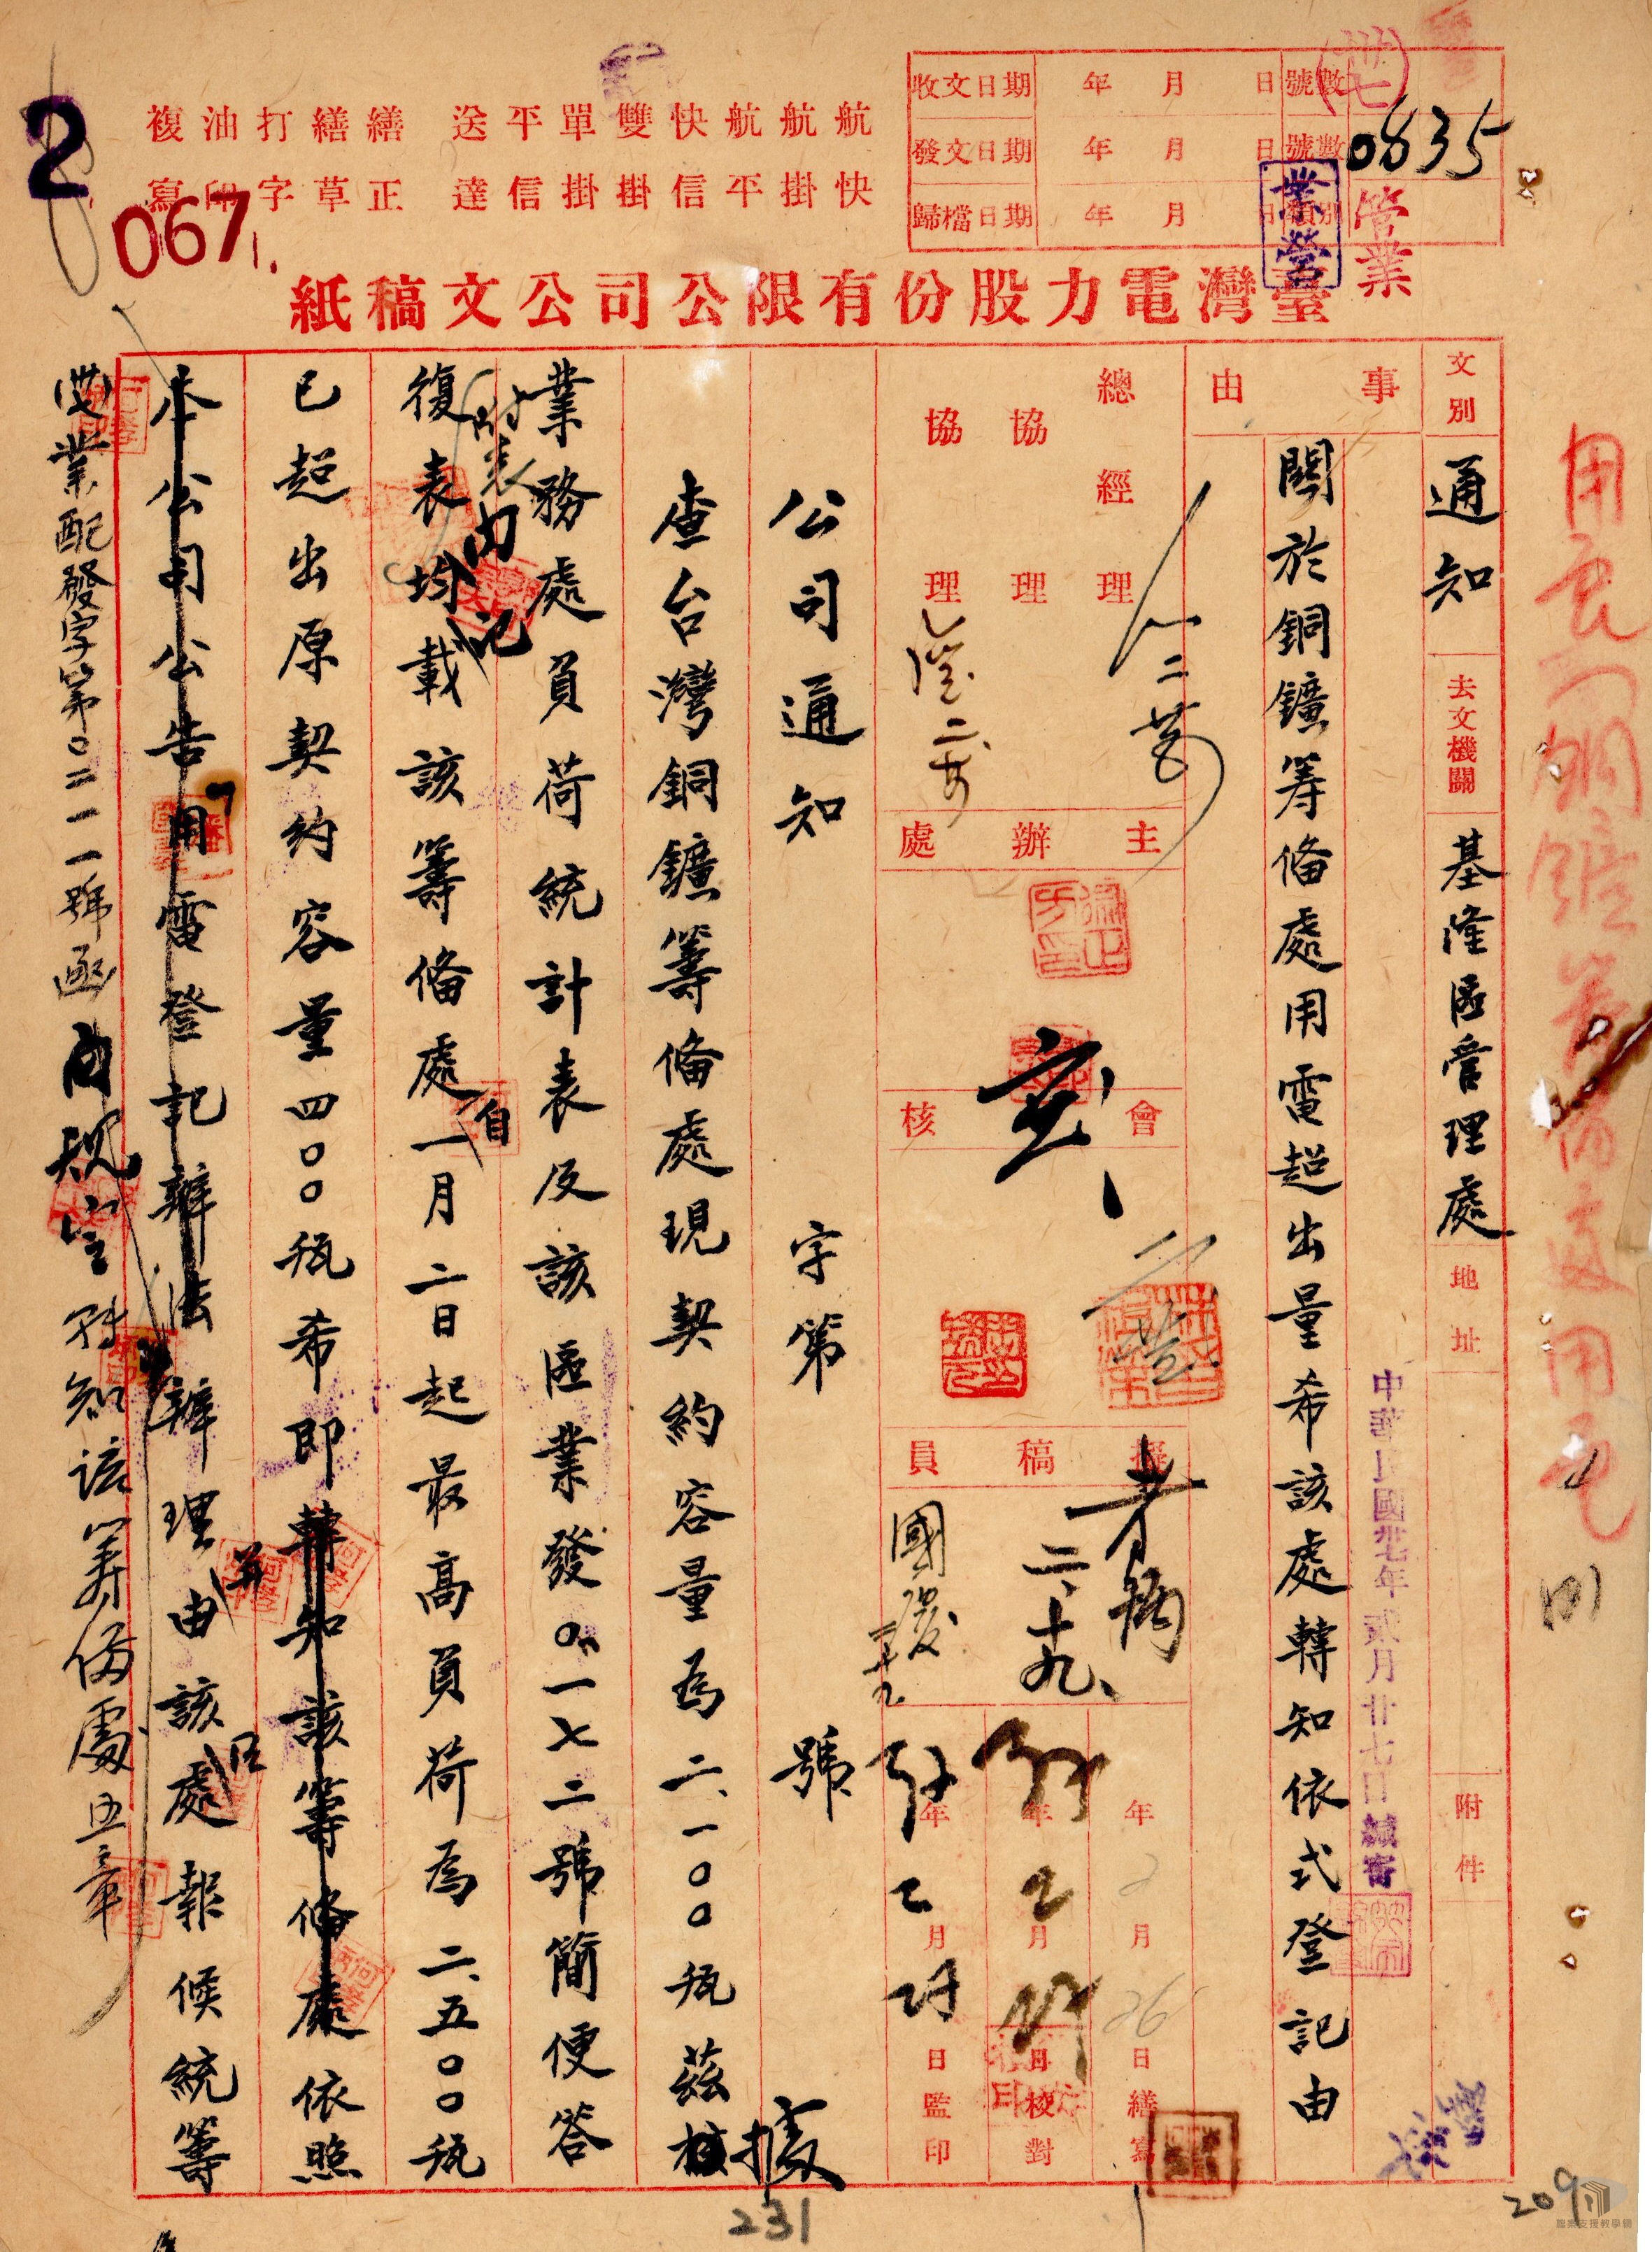 收文日期 年 月 日 號數
發文日期 年 月 日 號數
歸檔日期 年 月 日
0835
(卅七)
業營
營業
航 航 航 快 雙 單 平 送
快 掛 平 信 掛 掛 信 達
繕 繕 打 油 複
正 草 字 印 寫
2
0671.
臺灣電力股份有限公司公文稿紙
文別 通知
去文機關 基隆區管理處
地址
附件
中華民國卅七年貳月廿七日繕寄
事由
關於銅鑛籌備處用電超出量希該處轉知依式登記由
總經理
協理
協理
主辦處
會核
擬稿員
二、十九、
國浚
年 2 月 26 日繕寫
年 2 月 日校對
年 2 月 日監印
公司通知 字第 號
查台灣銅鑛籌備處現契約容量為二、一〇〇瓩茲據
業務處負荷統計表及該區業發〇一七二號簡便答
復表內均記載該籌備處自一月二日起最高負荷為二、五〇〇瓩
附表
已超出原契約容量四〇〇瓩希即轉知該籌備處依照
本公司公告用電登記辦法辦理並由該處報候統籌
(卅七)業配發字第〇二一一號函內規定轉知該籌備處
231
209